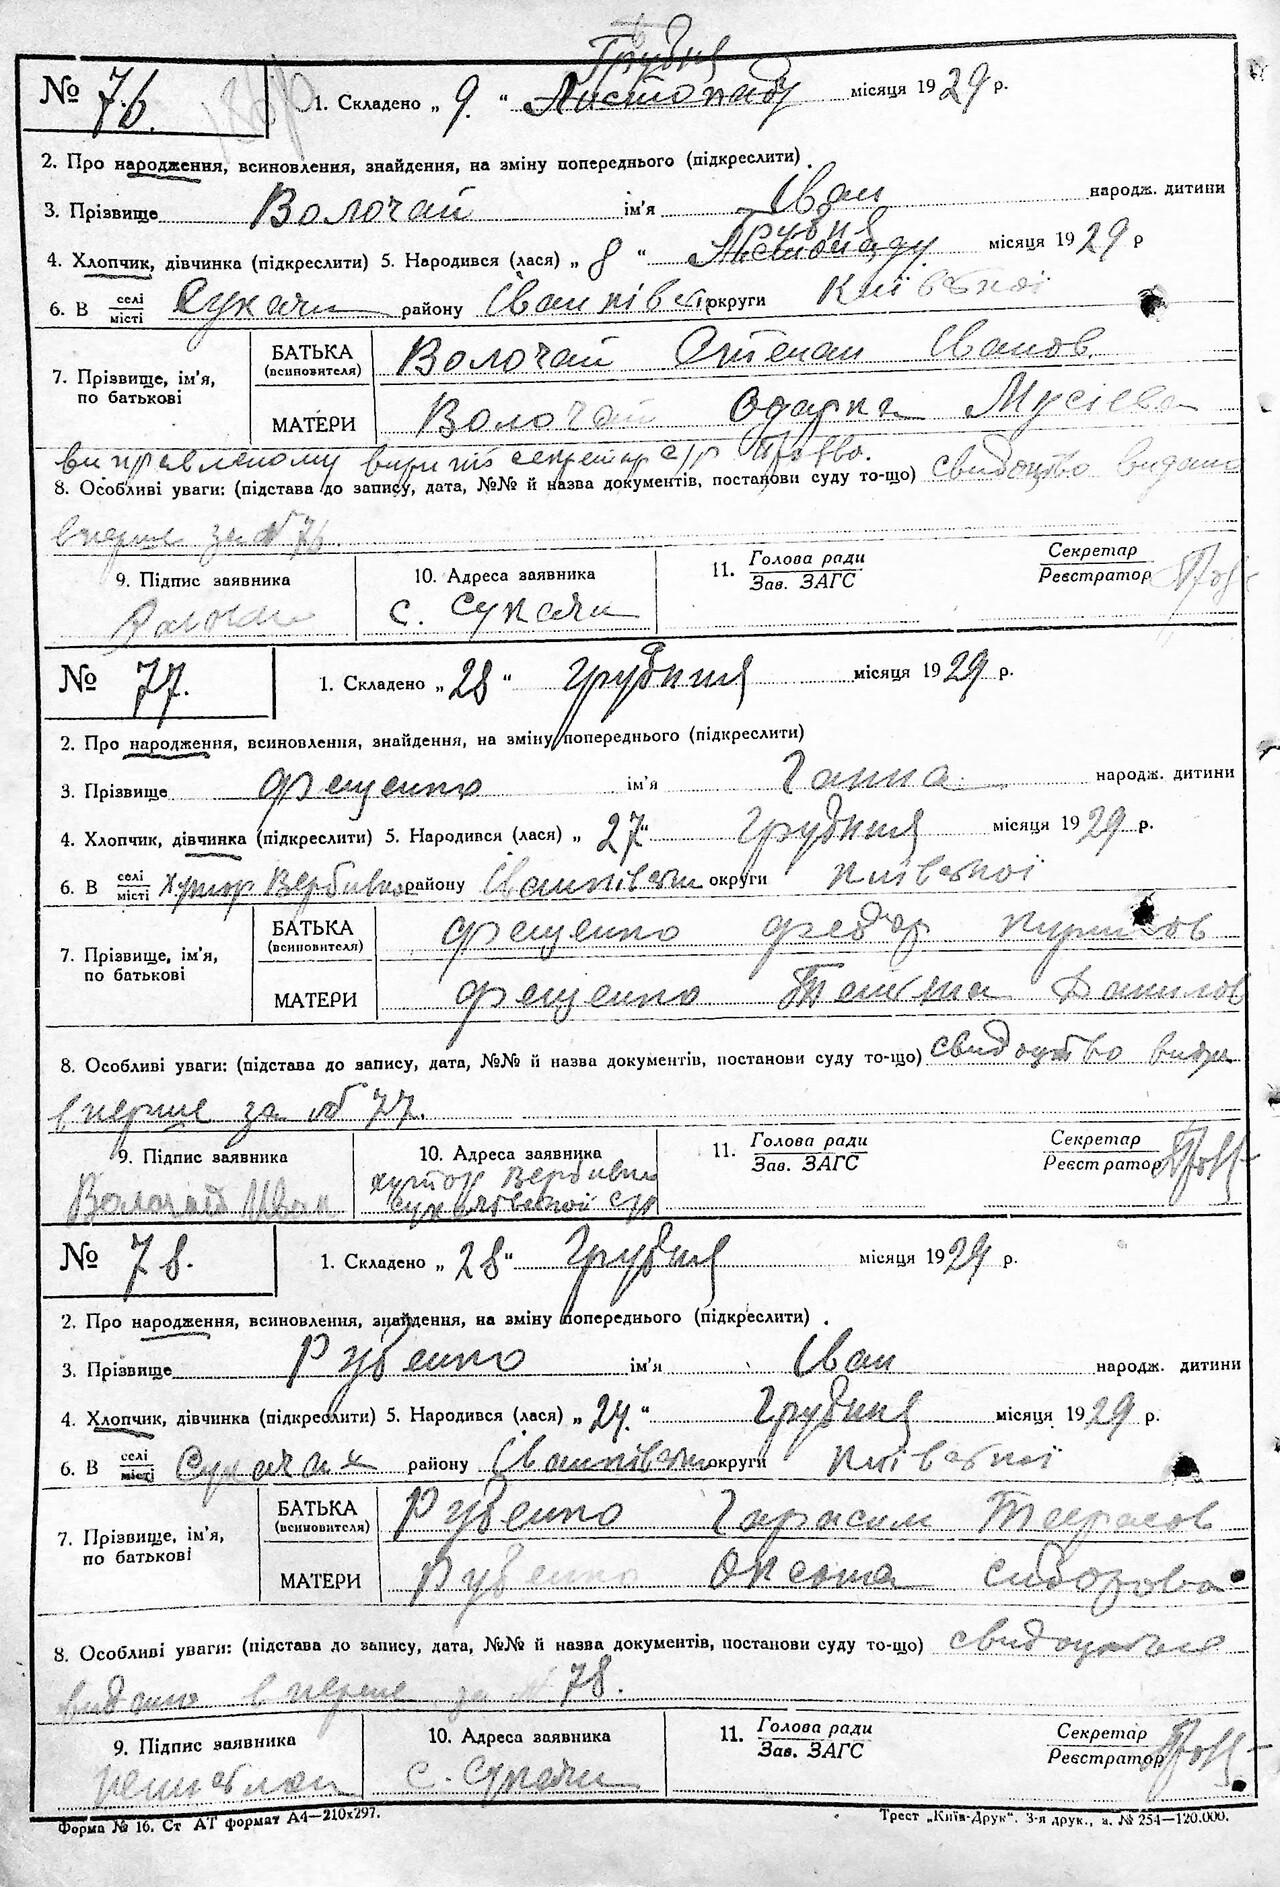 Грудня
№ 76. 1. Складено „ 9. “ Листопаду місяця 1929 р.
2. Про народження, всиновлення, знайдення, на зміну попереднього (підкреслити)
3. Прізвище Волочай ім'я Іван народж. дитини
Грудня
4. Хлопчик, дівчинка (підкреслити) 5. Народився (лася) „ 8 “ Листопаду місяця 1929 р
6. В селі/місті Сукачи району Іванківськ округи Київської
7. Прізвище, ім'я, по батькові
БАТЬКА (всиновителя) Волочай Степан Іванов
МАТЕРИ Волочай Одарка Мусіева
виправленому вірить секретар с/р
8. Особливі уваги: (підстава до запису, дата, №№ й назва документів, постанови суду то-що) свидоцтво видано
вперше за № 76.
9. Підпис заявника 10. Адреса заявника 11. Голова ради/Зав. ЗАГС Секретар/Реєстратор
Волочай с. Сукачи
№ 77. 1. Складено „ 28 “ Грудння місяця 1929 р.
2. Про народження, всиновлення, знайдення, на зміну попереднього (підкреслити)
3. Прізвище Фещенко ім'я Ганна народж. дитини
4. Хлопчик, дівчинка (підкреслити) 5. Народився (лася) „ 27 “ Грудння місяця 1929 р.
6. В селі/місті хутор Вербивка району Іванківськи округи Київської
7. Прізвище, ім'я, по батькові
БАТЬКА (всиновителя) Фещенко Федор Кирилов
МАТЕРИ Фещенко Текля Данилов
8. Особливі уваги: (підстава до запису, дата, №№ й назва документів, постанови суду то-що) свидоцтво вида
вперше за № 77.
9. Підпис заявника 10. Адреса заявника 11. Голова ради/Зав. ЗАГС Секретар/Реєстратор
Волочай Иван хутор Вербивка
с/р
№ 78. 1. Складено „ 28 “ Грудня місяця 1929 р.
2. Про народження, всиновлення, знайдення, на зміну попереднього (підкреслити)
3. Прізвище Рубенко ім'я Іван народж. дитини
4. Хлопчик, дівчинка (підкреслити) 5. Народився (лася) „ 24. “ Грудння місяця 1929 р.
6. В селі/місті Сукачах району Іванківськи округи Київської
7. Прізвище, ім'я, по батькові
БАТЬКА (всиновителя) Рубенко Гарасим Тарасов
МАТЕРИ Рубенко Оксана Сидорова
8. Особливі уваги: (підстава до запису, дата, №№ й назва документів, постанови суду то-що) свидоцтво
видано вперше за № 78.
9. Підпис заявника 10. Адреса заявника 11. Голова ради/Зав. ЗАГС Секретар/Реєстратор
с. Сукачи
Форма № 16. Ст АТ формат А4—210х297. Трест „Київ-Друк“. 3-я друк., з. № 254—120.000.